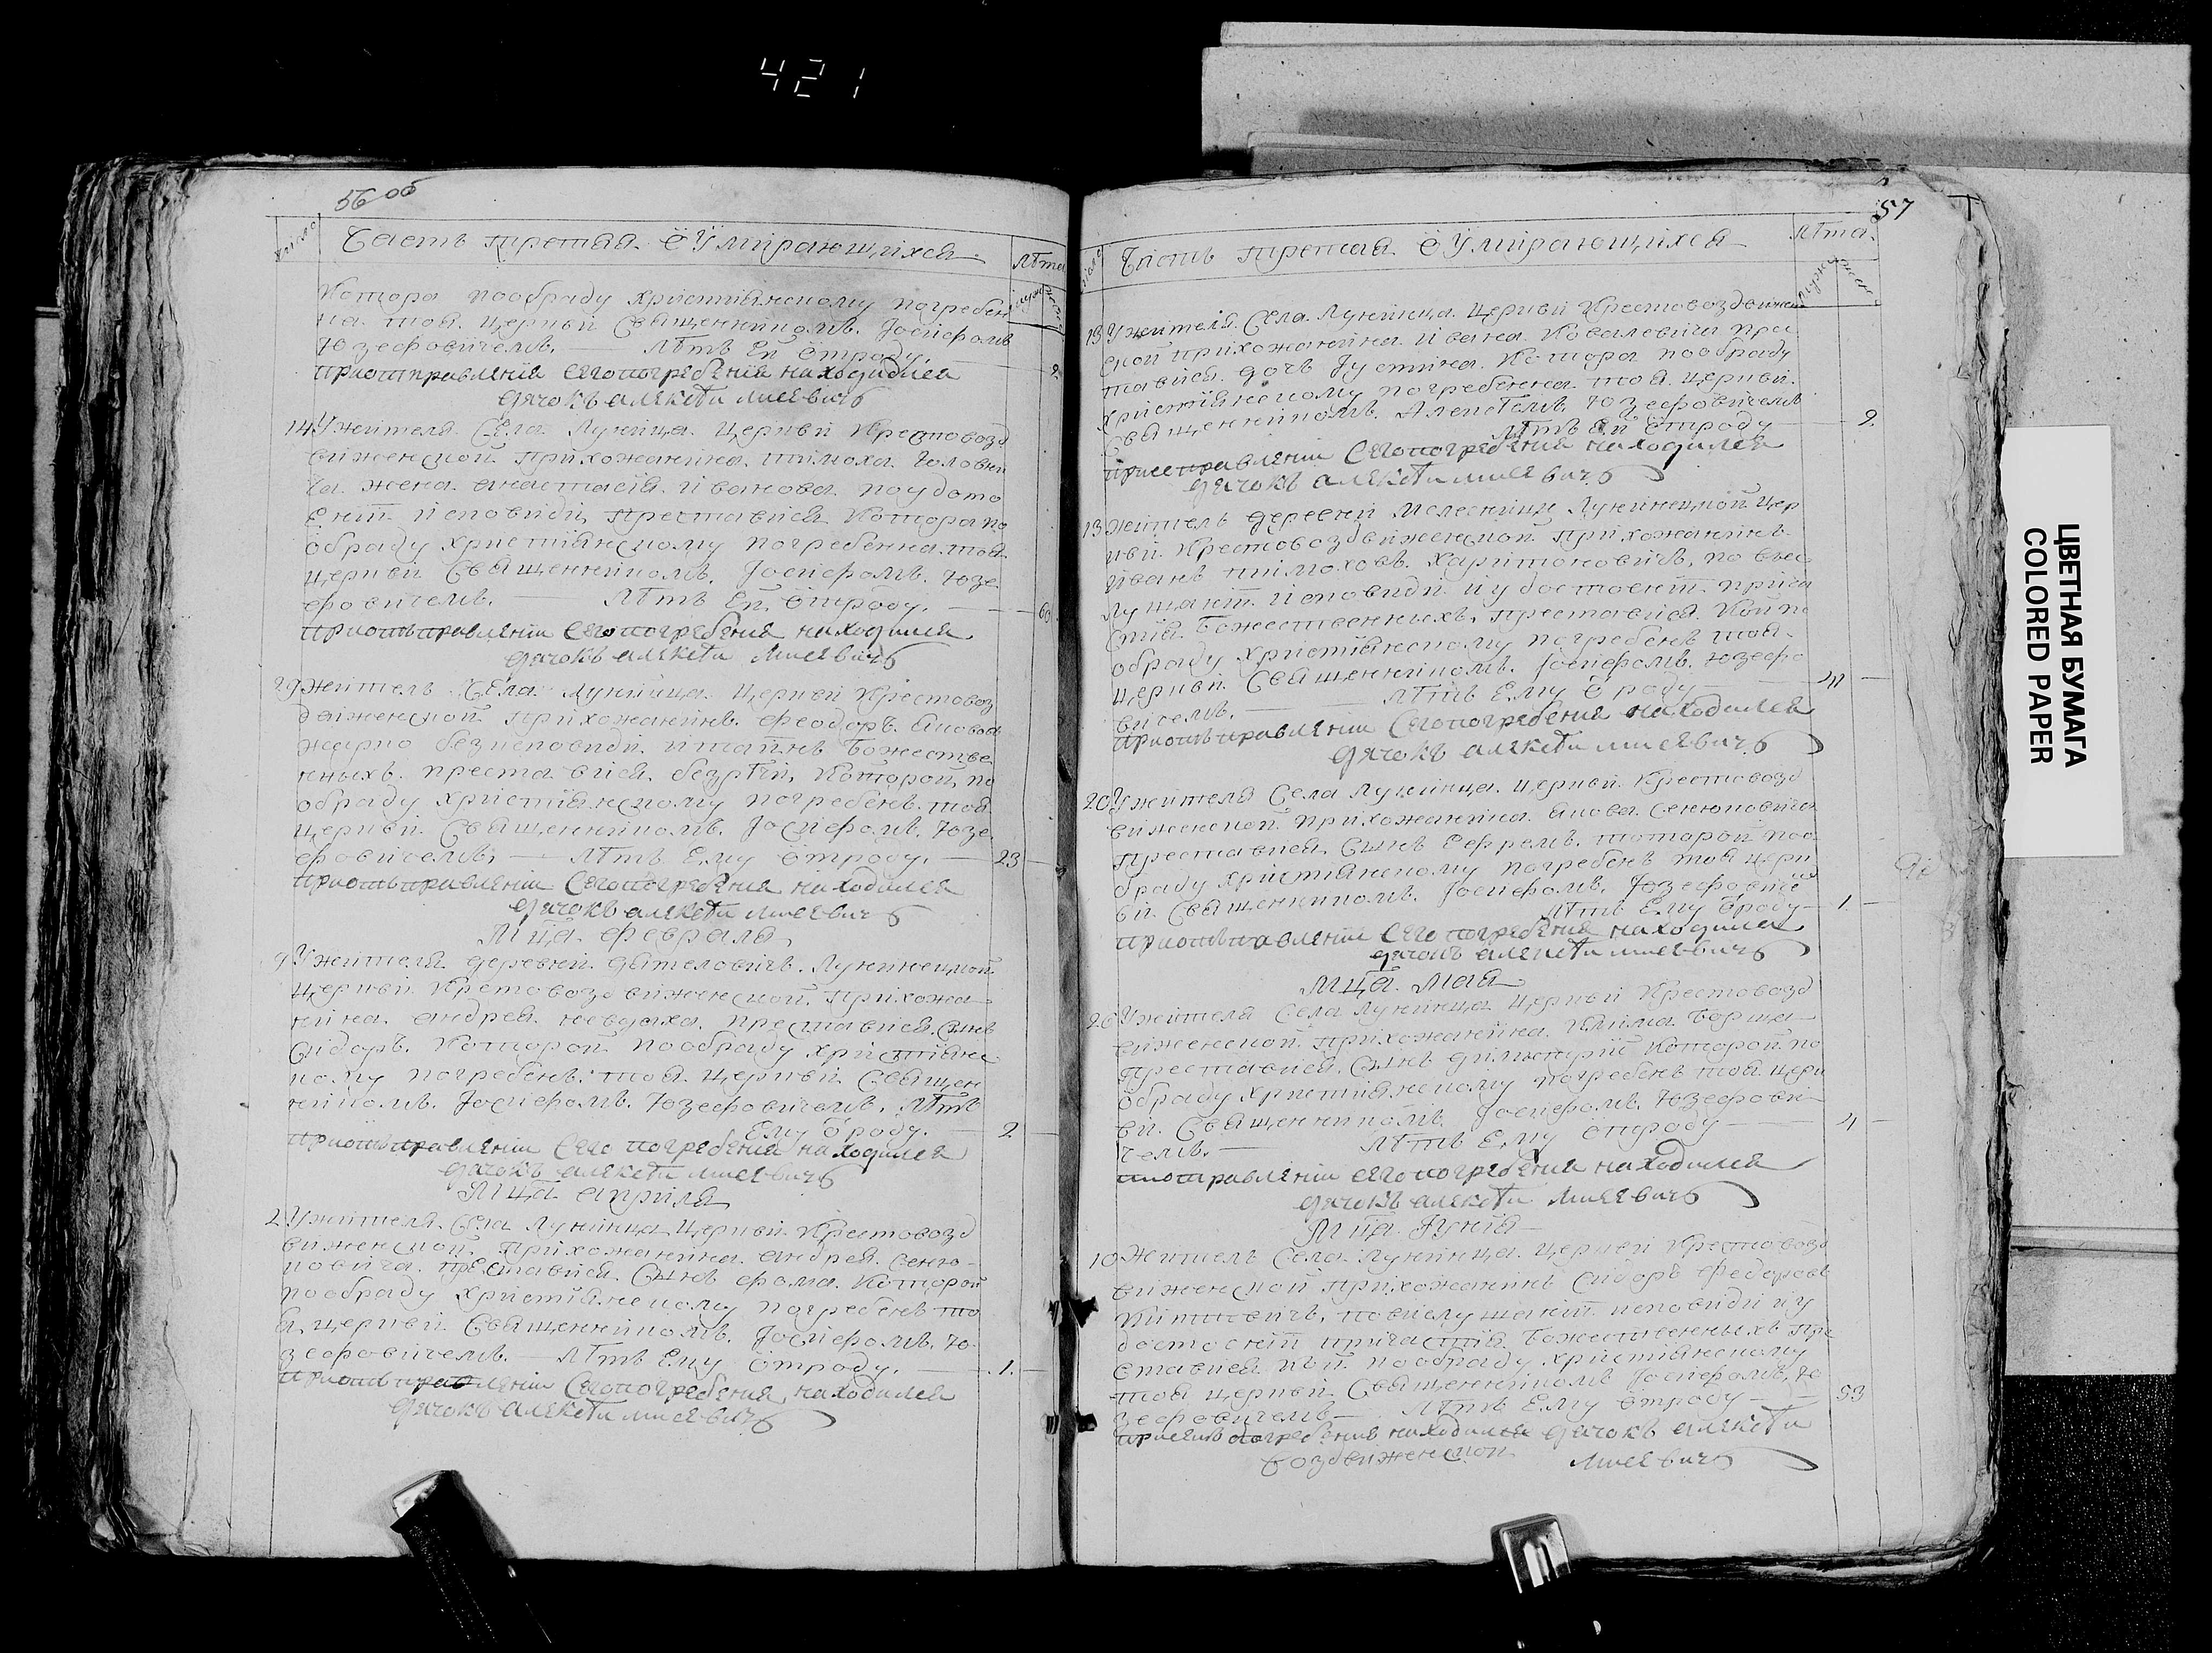 421
56 об
число
Часть третая ö Умирающихся
лѣта
муж
жен
Котора пообраду христіянскому погребен
на тоя церкви Священникомъ Іосифомъ
Юзефовичемъ. — Лѣтъ Ей ötроду. — 2
приотправленіи Сегопогребенія находился
дячокъ алякѣти мисевичъ
14 Ужителя Села Лунинца церкви Крестовозд
виженской прихожанина тимоха головки
жена анастасія иванова поудосто
еніи исповиди, преставися Котора по
обраду христіянскому погребенна тоя
церкви Священникомъ Іосифомъ Юзе
фовичемъ. — Лѣтъ Ей ötроду. — 60.
приотьправленіи Сегопогребенія находился
дячокъ алякѣти мисевичъ
29 Житель Села Лунинца церкви Крестовоз
движенской прихожанинъ Феодоръ
безисповиди итайнъ Божестве
нныхъ преставися, Которой по
обраду христіянскому погребенъ тоя
церкви Священникомъ Іосифомъ Юзе
фовичемъ, — Лѣтъ Ему ötроду. — 23
приотьправленіи Сегопогребенія находился
дячокъ алякѣти мисевичъ
Мца февраля
9 Ужителя деревни дятеловичъ Лунинецкой
церкви Крстовоздвиженской Прихожа
нина андрея преставися Сынъ
Сидоръ. Которой пообраду христіянс
кому погребенъ тоя церкви Священ
никомъ Іосифомъ Юзефовичемъ, Лѣтъ
Ему ö роду. — 2
приотьправленіи Сего погребенія находился
дячокъ алякѣти мисевичъ
Мца априля
2 Ужителя Села Лунинца церкви Крестовозд
виженской прихожанина андрея Сеню-
ковича преставися Сынъ фома Которой
пообраду христіянскому погребенъ то
я церкви Священникомъ Іосифомъ Ю
зефовичемъ. — Лѣтъ Ему ötроду. — 1.
приотьправленіи Сегопогребенія находился
дячокъ алякѣти мисевичъ
57
число
Часть третая ö Умирающихся
Лѣта
мужс
жен
13 Ужителя Села Лунинца церкви Крестовоздвижен
ской прихожанина Ивана Ковалевича пре
ставися дочъ Іустина Котора пообраду
христіянскому погребенна тоя церкви
Священникомъ Юзефовичемъ
Лѣтъ Ей ötроду — 2
Сегопогребенія находился
дячокъ алякѣти мисевичъ
13 Житель деревни Мелесниц Лунинецкой цер
кви Крестовоздвиженской прихожанинъ
Иванъ тимоховъ Харитоновичъ, по выс
лушаніи исповиди иудостоеніи прича
стія Божественныхъ, преставися Кой по
обраду христіянскому погребенъ тоя
церкви Священникомъ Іосифомъ Юзефо
вичемъ. — Лѣтъ Ему ö роду —
приотьправленіи Сегопогребенія находился
дячокъ алякѣти мисевичъ
20 Ужителя Села Лунинца церкви Крестовозд
виженской прихожанина якова Сенюковича
преставися Сынъ Ефремъ которой поо
браду христіянскому погребенъ тоя церк
ви Священникомъ Іосифомъ Юзефовичё
Лѣтъ Ему ö роду — 1
приотьправленіи Сего погребенія находился
дячокъ алякѣти мисевичъ
Мца мая
26 Ужителя Села Лунинца церкви Крестовозд
виженской прихожанина Клима Борща
преставися Сынъ димитрій Которой по
обраду христіянскому погребенъ тоя церк
ви Священникомъ Іосифомъ Юзефови
чемъ. — Лѣтъ Ему ötроду — 4
сегопогребенія находился
дячокъ алякѣти мисевичъ
Мца Іунія
10 Житель Села Лунинца церкви Крестовозд
виженской прихожанинъ Сидоръ Федоровъ
исповиди иу
достоеніи причастія Божественныхъ пре
ставися кой пообраду христіянскому
тоя церкви Священникомъ Іосифомъ Ю
зефовичемъ — Лѣтъ Ему ötроду — 53
погребенія находился дячокъ алякѣти
воздвиженской мисевичъ
ЦВЕТНАЯ БУМАГА
COLORED PAPER